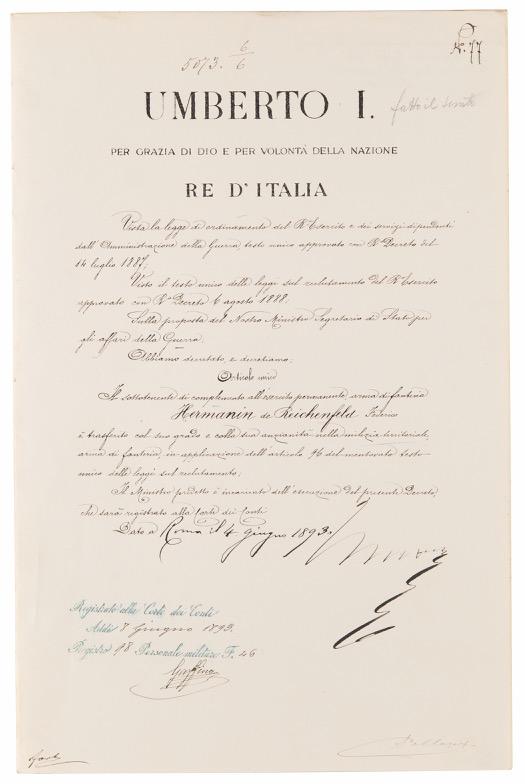 No. 77
5073. 6/6
UMBERTO I.
fatto il
PER GRAZIA DI DIO E PER VOLONTÀ DELLA NAZIONE
RE D'ITALIA
Vista la legge di ordinamento del R. Esercito e dei servizi dipendenti
dall'Amministrazione della Guerra, testo unico approvato con R. Decreto del
14 luglio 1887;
Visto il testo unico delle leggi sul reclutamento del R. Esercito
approvato con R. Decreto 6 agosto 1888.
Sulla proposta del Nostro Ministro Segretario di Stato per
gli affari della Guerra;
Abbiamo decretato e decretiamo:
Articolo unico
Il sottotenente di complemento all'esercito permanente, arma di fanteria
Hermanin de Reichenfeld Federico
è trasferto col suo grado e colla sua anzianità nella milizia territoriale,
arma di fanteria, in applicazione dell'articolo 96 del mentovato testo
unico delle leggi sul reclutamento;
Il Ministro predetto è incaricato dell'esecuzione del presente Decreto,
che sarà registrato alla Corte dei Conti
Dato a Roma il 4 giugno 1893.
Registrato alla Corte dei Conti
Addì 8 Giugno 1893.
Registro 98 Personale militare F. 46